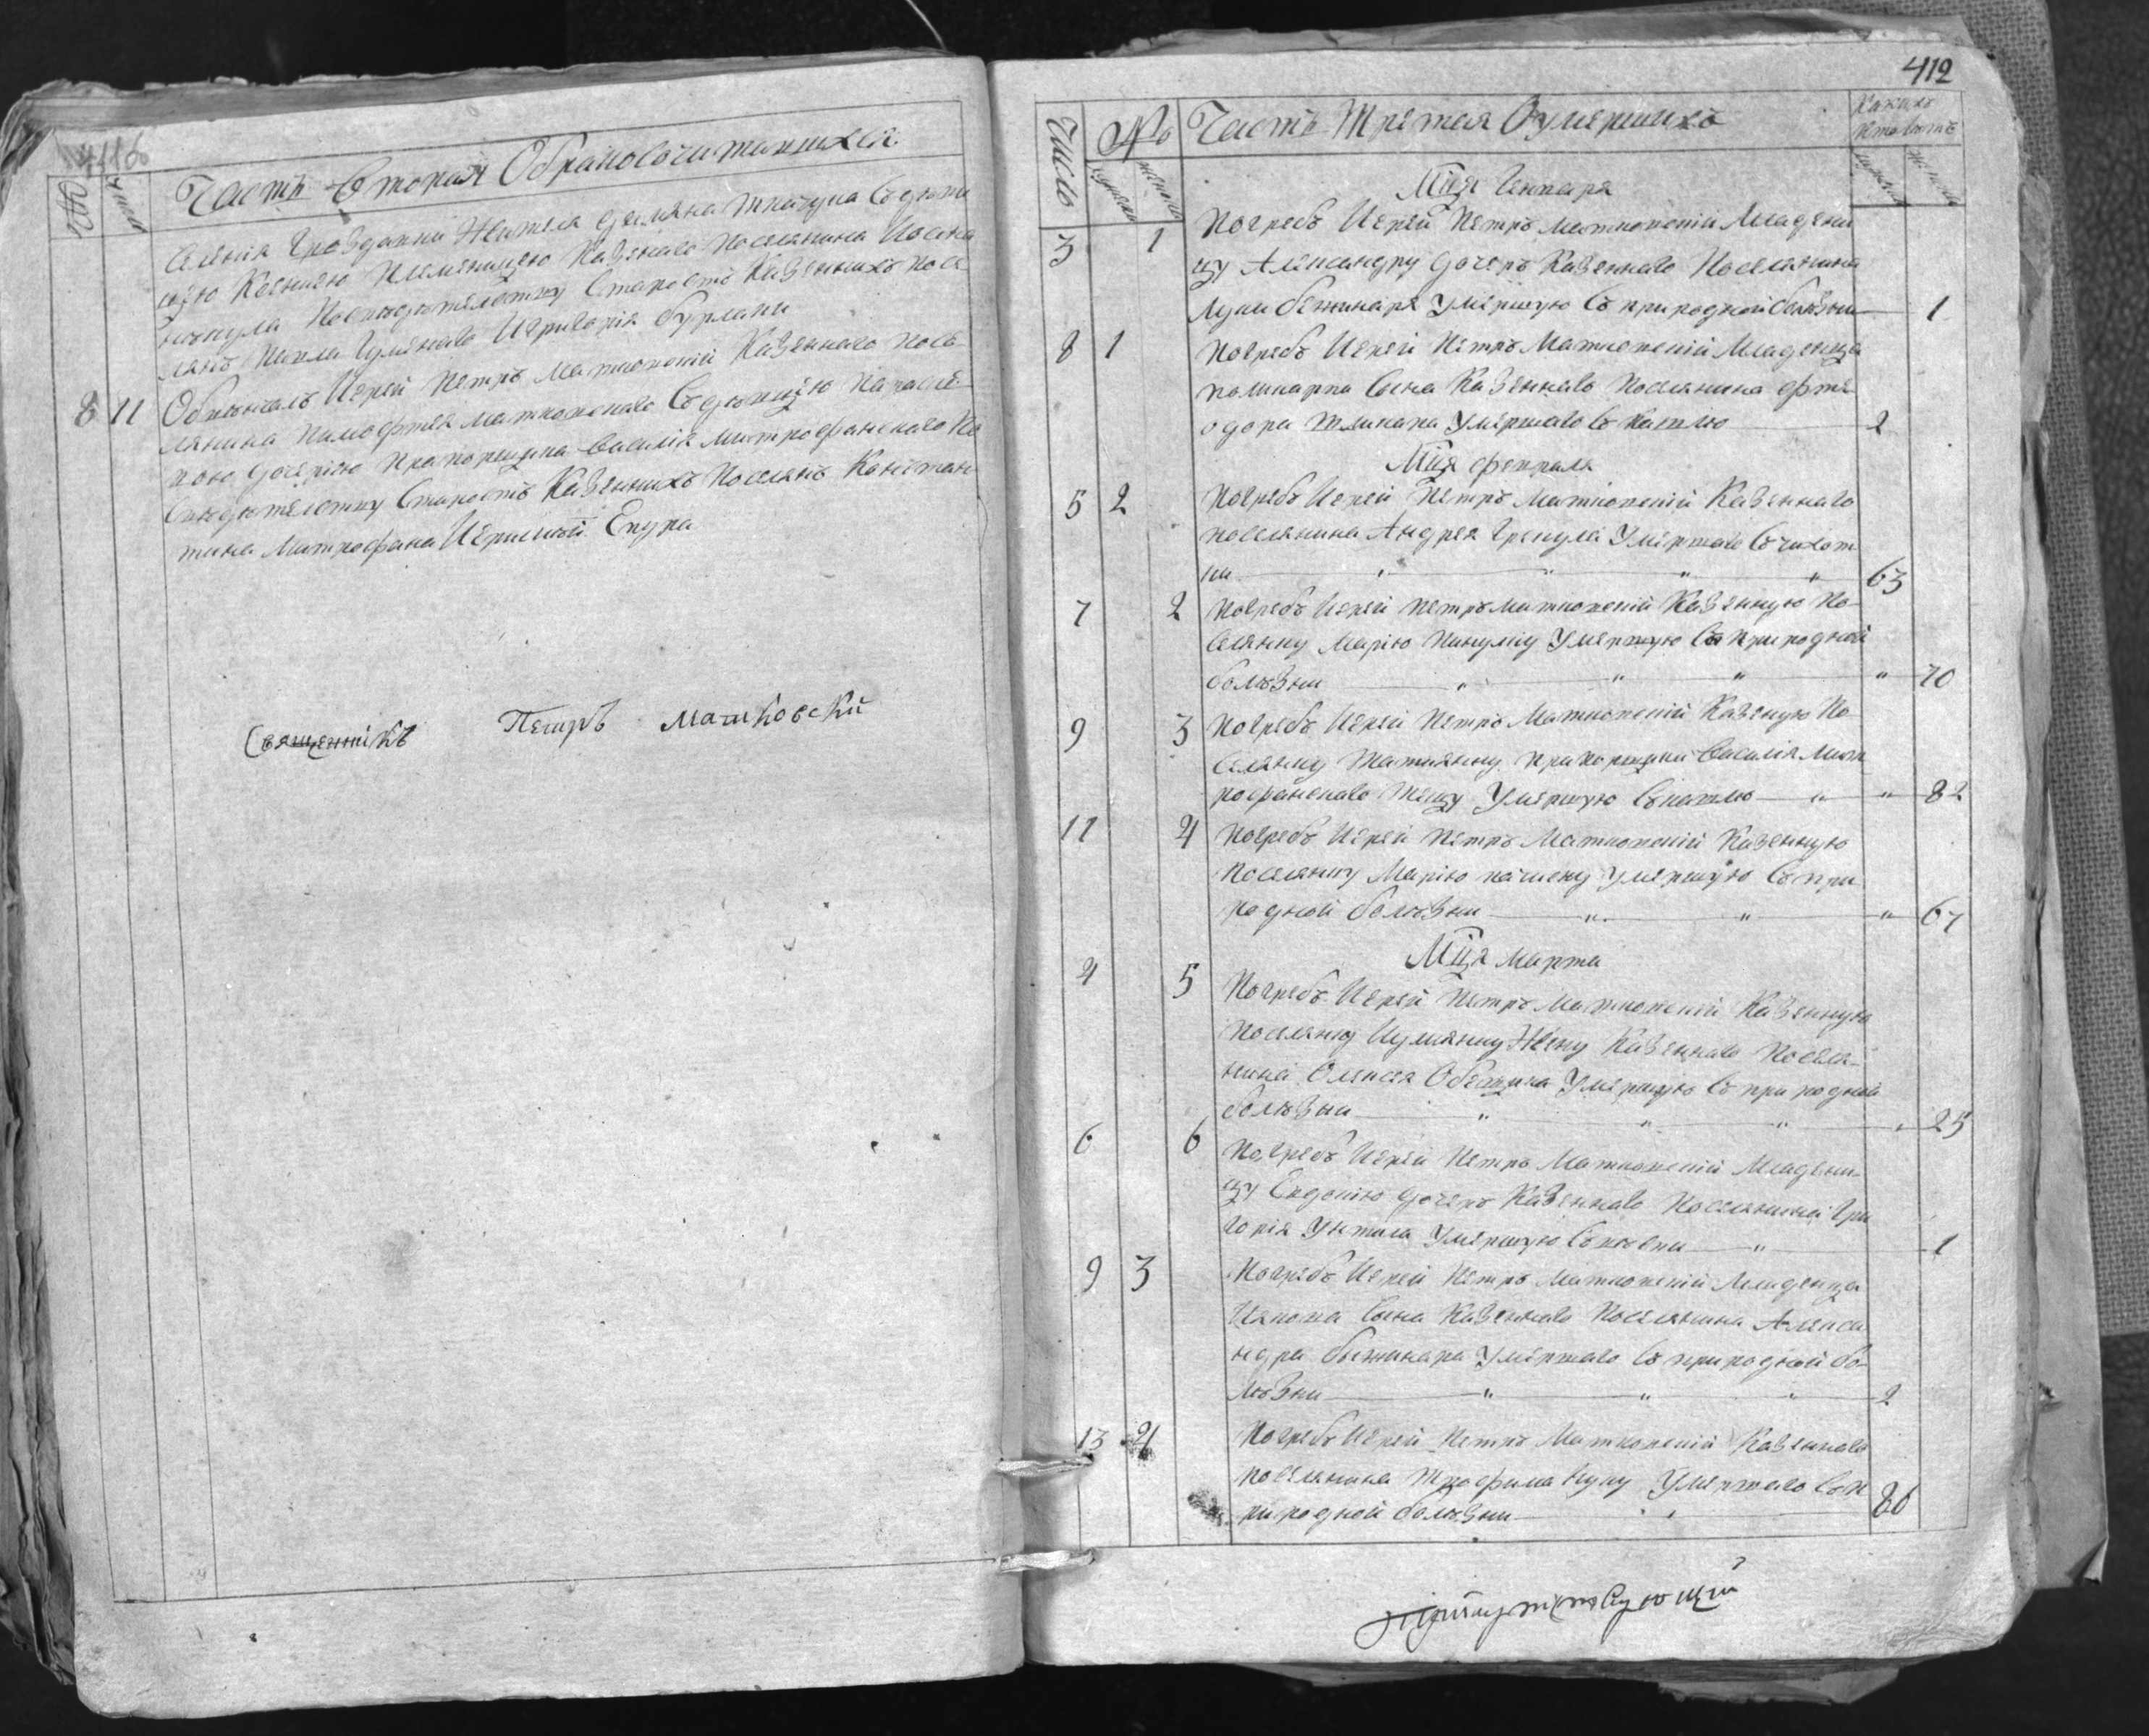 Часть Вторая О бракосочитавшихся
№ Число
селенія жителя съ девы
цею Ксениею племяницею Казеннаго поселянина Иоана
по свидетелству Старостъ Казенныхъ посе
лянъ Павла И Григорія Бурлаки
8 11 Обвенчалъ Иерей Петръ Матковскій Казеннаго посе
лянина Тимофтея Матковскаго Съ девицею Параске
вою дочерию Прапорщика Василія Митрофанскаго По
Свидетелству Старостъ Казенныхъ Поселянъ Констан
тина Митрофана И
Священникъ Петръ Матковски
412
Число № Часть Третея О умершихъ
Мця Генваря
3 1 Погребъ Иерей Петръ Матковскій Младени
цу Александру дочерь Казеннаго Поселянина
Луки умершую Съ природной болезни 1
8 1 Погребъ Иерей Петръ Матковскій Младенца
Поликарпа Сына Казеннаго Поселянина Фте
одора умершаго Съ кашлю 2
Мця Февраля
5 2 Погребъ Иерей Петръ Матковскій Казеннаго
поселянина Андрея Умершаго Съ чихот
ки 63
7 2 Погребъ Иерей Петръ Матковскій Казенную По-
селянку Марію Умершую Съ природной
болезни 70
9 3 Погребъ Иерей Петръ Матковскій Казеную По
селянку Татиянну Прапорщика Василія Мит
рофанскаго тещу Умершую Съ кашлю 82
11 4 Погребъ Иерей Петръ Матковскій Казенную
Поселянку Марію Умершую Съ при
родной болезни 67
Мця Марта
4 5 Погребъ Иерей Петръ Матковскій Казенную
Поселянку Иулиянну Жену Казеннаго Поселя-
нина Олексея Умершую Съ природной
болезни 25
6 6 Погребъ Иерей Петръ Матковскій Младени-
цу Евдокию дочерь Казеннаго Поселянина Гри
горія Унтила Умершую 1
9 3 Погребъ Иерей Петръ Матковскій Младенца
Иякова Сына Казеннаго Поселянина Алекса
ндра Умершаго Съ природной бо-
лезни 2
13 4 Погребъ Иерей Петръ Матковскій Казеннаго
поселянина Трофима Умершаго Съ п
риродной болезни 86